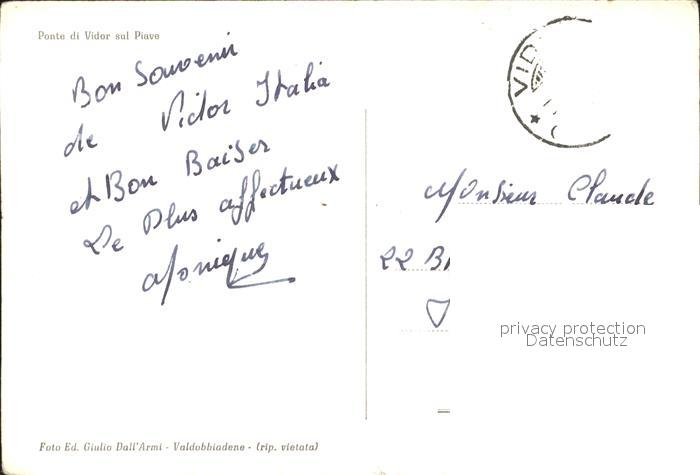 Ponte di Vidor sul Piave
Bon Souvenir
de Vidor Italia
et Bon Baiser
Le Plus affectueux
Monique
VID
Monsieur Claude
22 B
privacy protection
Datenschutz
Foto Ed. Giulio Dall'Armi - Valdobbiadene - (rip. vietata)